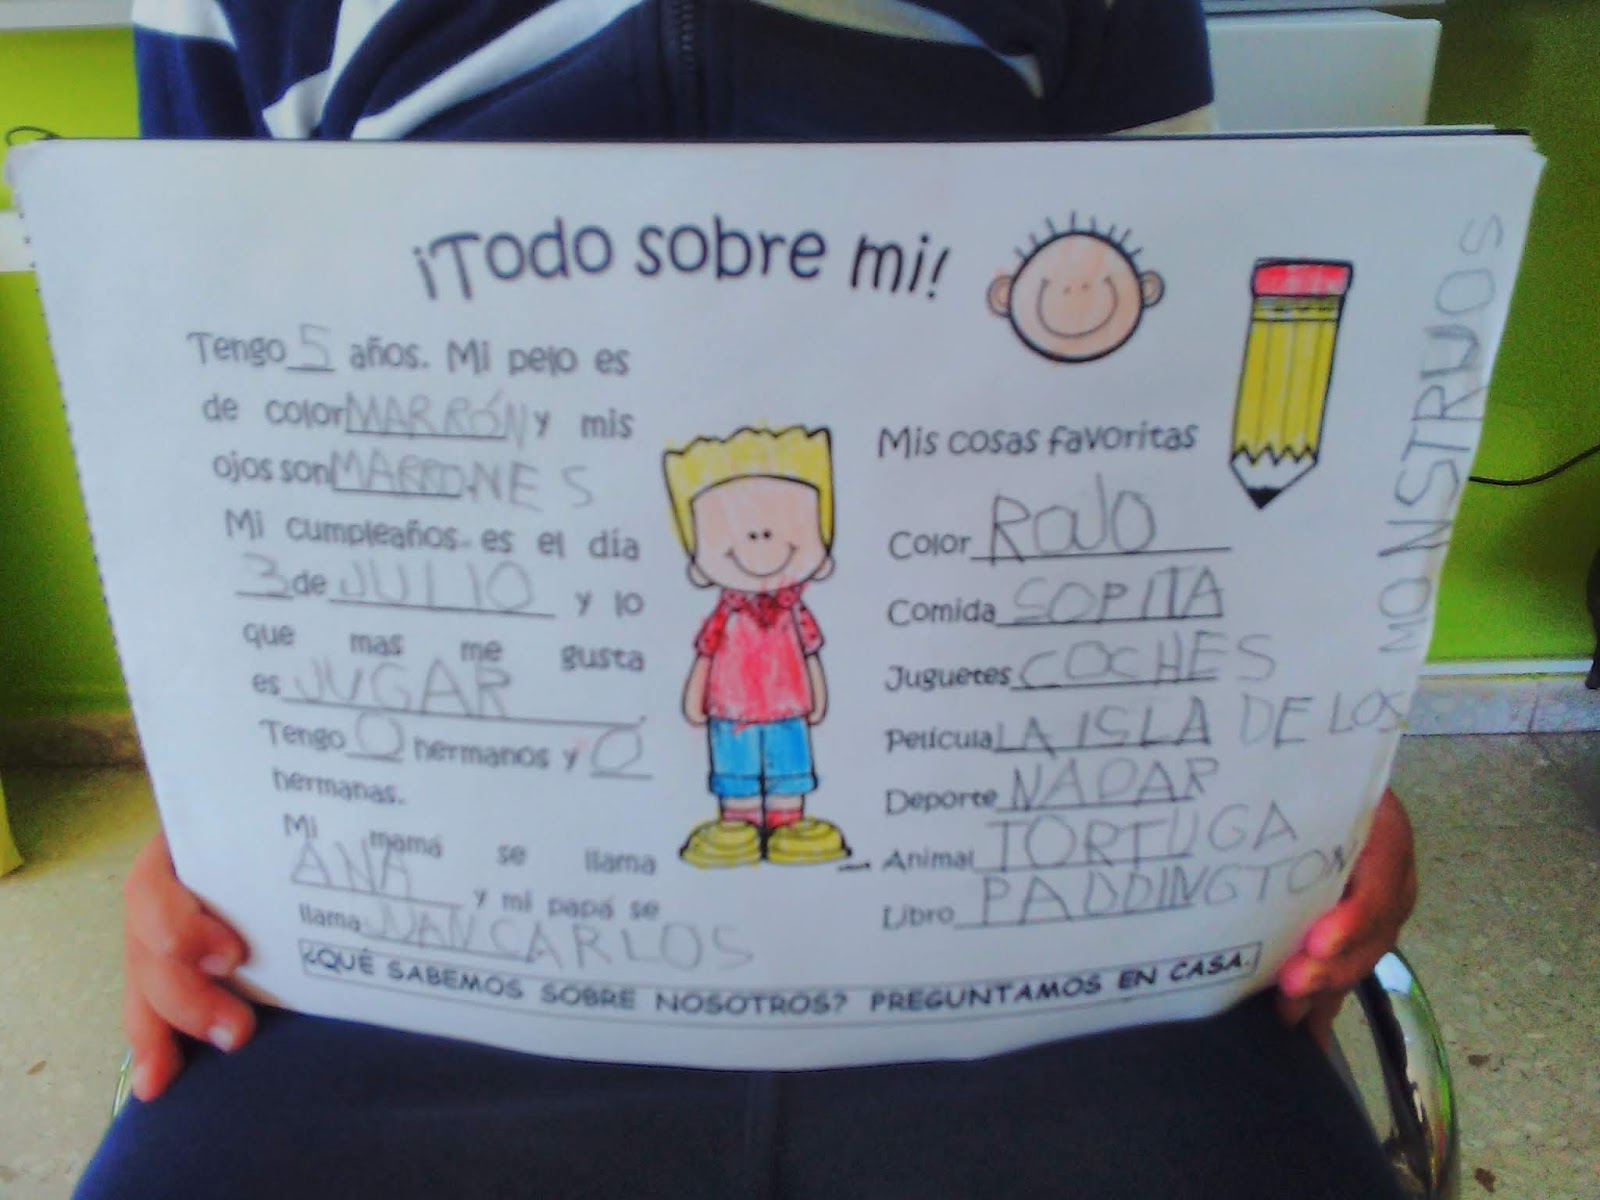 ¡Todo sobre mi!
Tengo 5 años. Mi pelo es
de color MARRÓN y mis
ojos son MARRONES
Mi cumpleaños es el día
3 de JULIO y lo
que mas me gusta
es JUGAR.
Tengo 0 hermanos y 0
hermanas.
Mi mamá se llama
ANA y mi papá se
llama JUAN CARLOS
Mis cosas favoritas
Color ROJO
Comida SOPITA
Juguetes COCHES
Película LA ISLA DE LOS
MONSTRUOS
Deporte NADAR
Animal TORTUGA
Libro PADDINGTON
¿QUÉ SABEMOS SOBRE NOSOTROS? PREGUNTAMOS EN CASA.